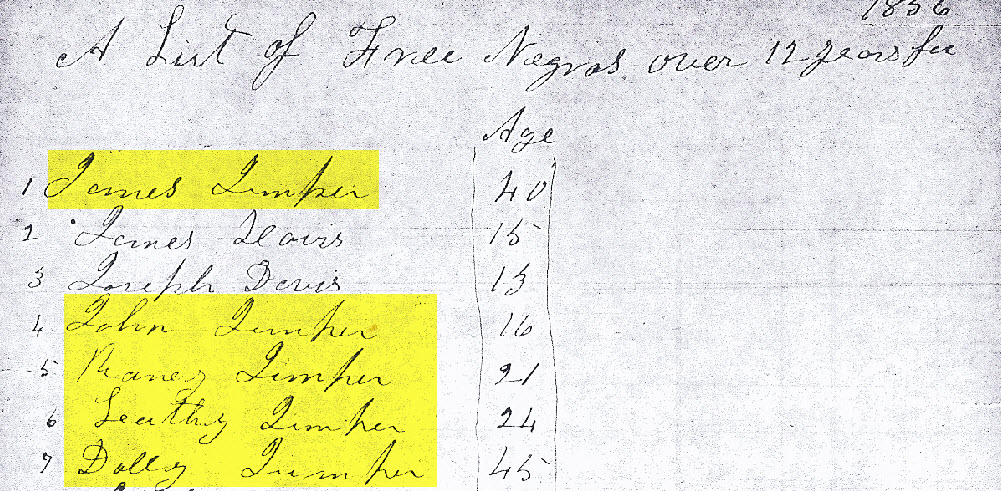 1856
A List of Free Negros over 12 years for
Age
1 James Jumper 40
2 James Davis 15
3 Joseph Davis 13
4 John Jumper 16
5 Raney Jumper 21
6 Leathy Jumper 24
7 Dolly Jumper 45